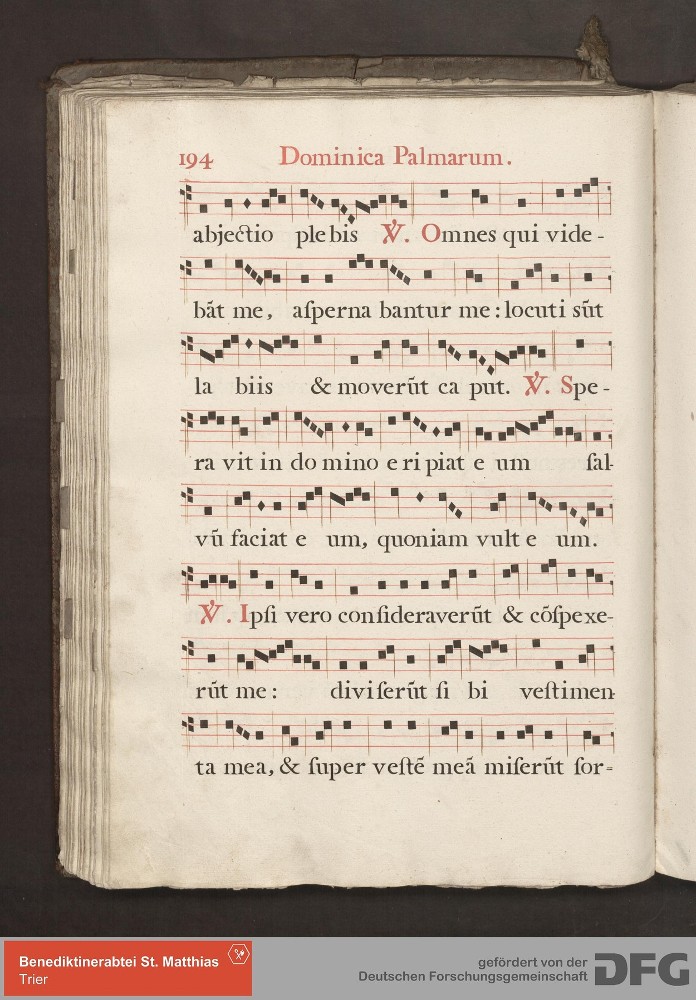 194 Dominica Palmarum.
abjectio plebis ℣. Omnes qui vide-
bãt me, aſperna bantur me: locuti sũt
la biis & moverũt ca put. ℣. Spe-
ra vit in do mino e ri piat e um ſal-
vũ faciat e um, quoniam vult e um.
℣. Ipſi vero conſideraverũt & cõſpexe-
rũt me: diviſerũt ſi bi veſtimen-
ta mea, & ſuper veſtẽ meã miſerũt ſor-
Benediktinerabtei St. Matthias
Trier
gefördert von der
Deutschen Forschungsgemeinschaft
DFG